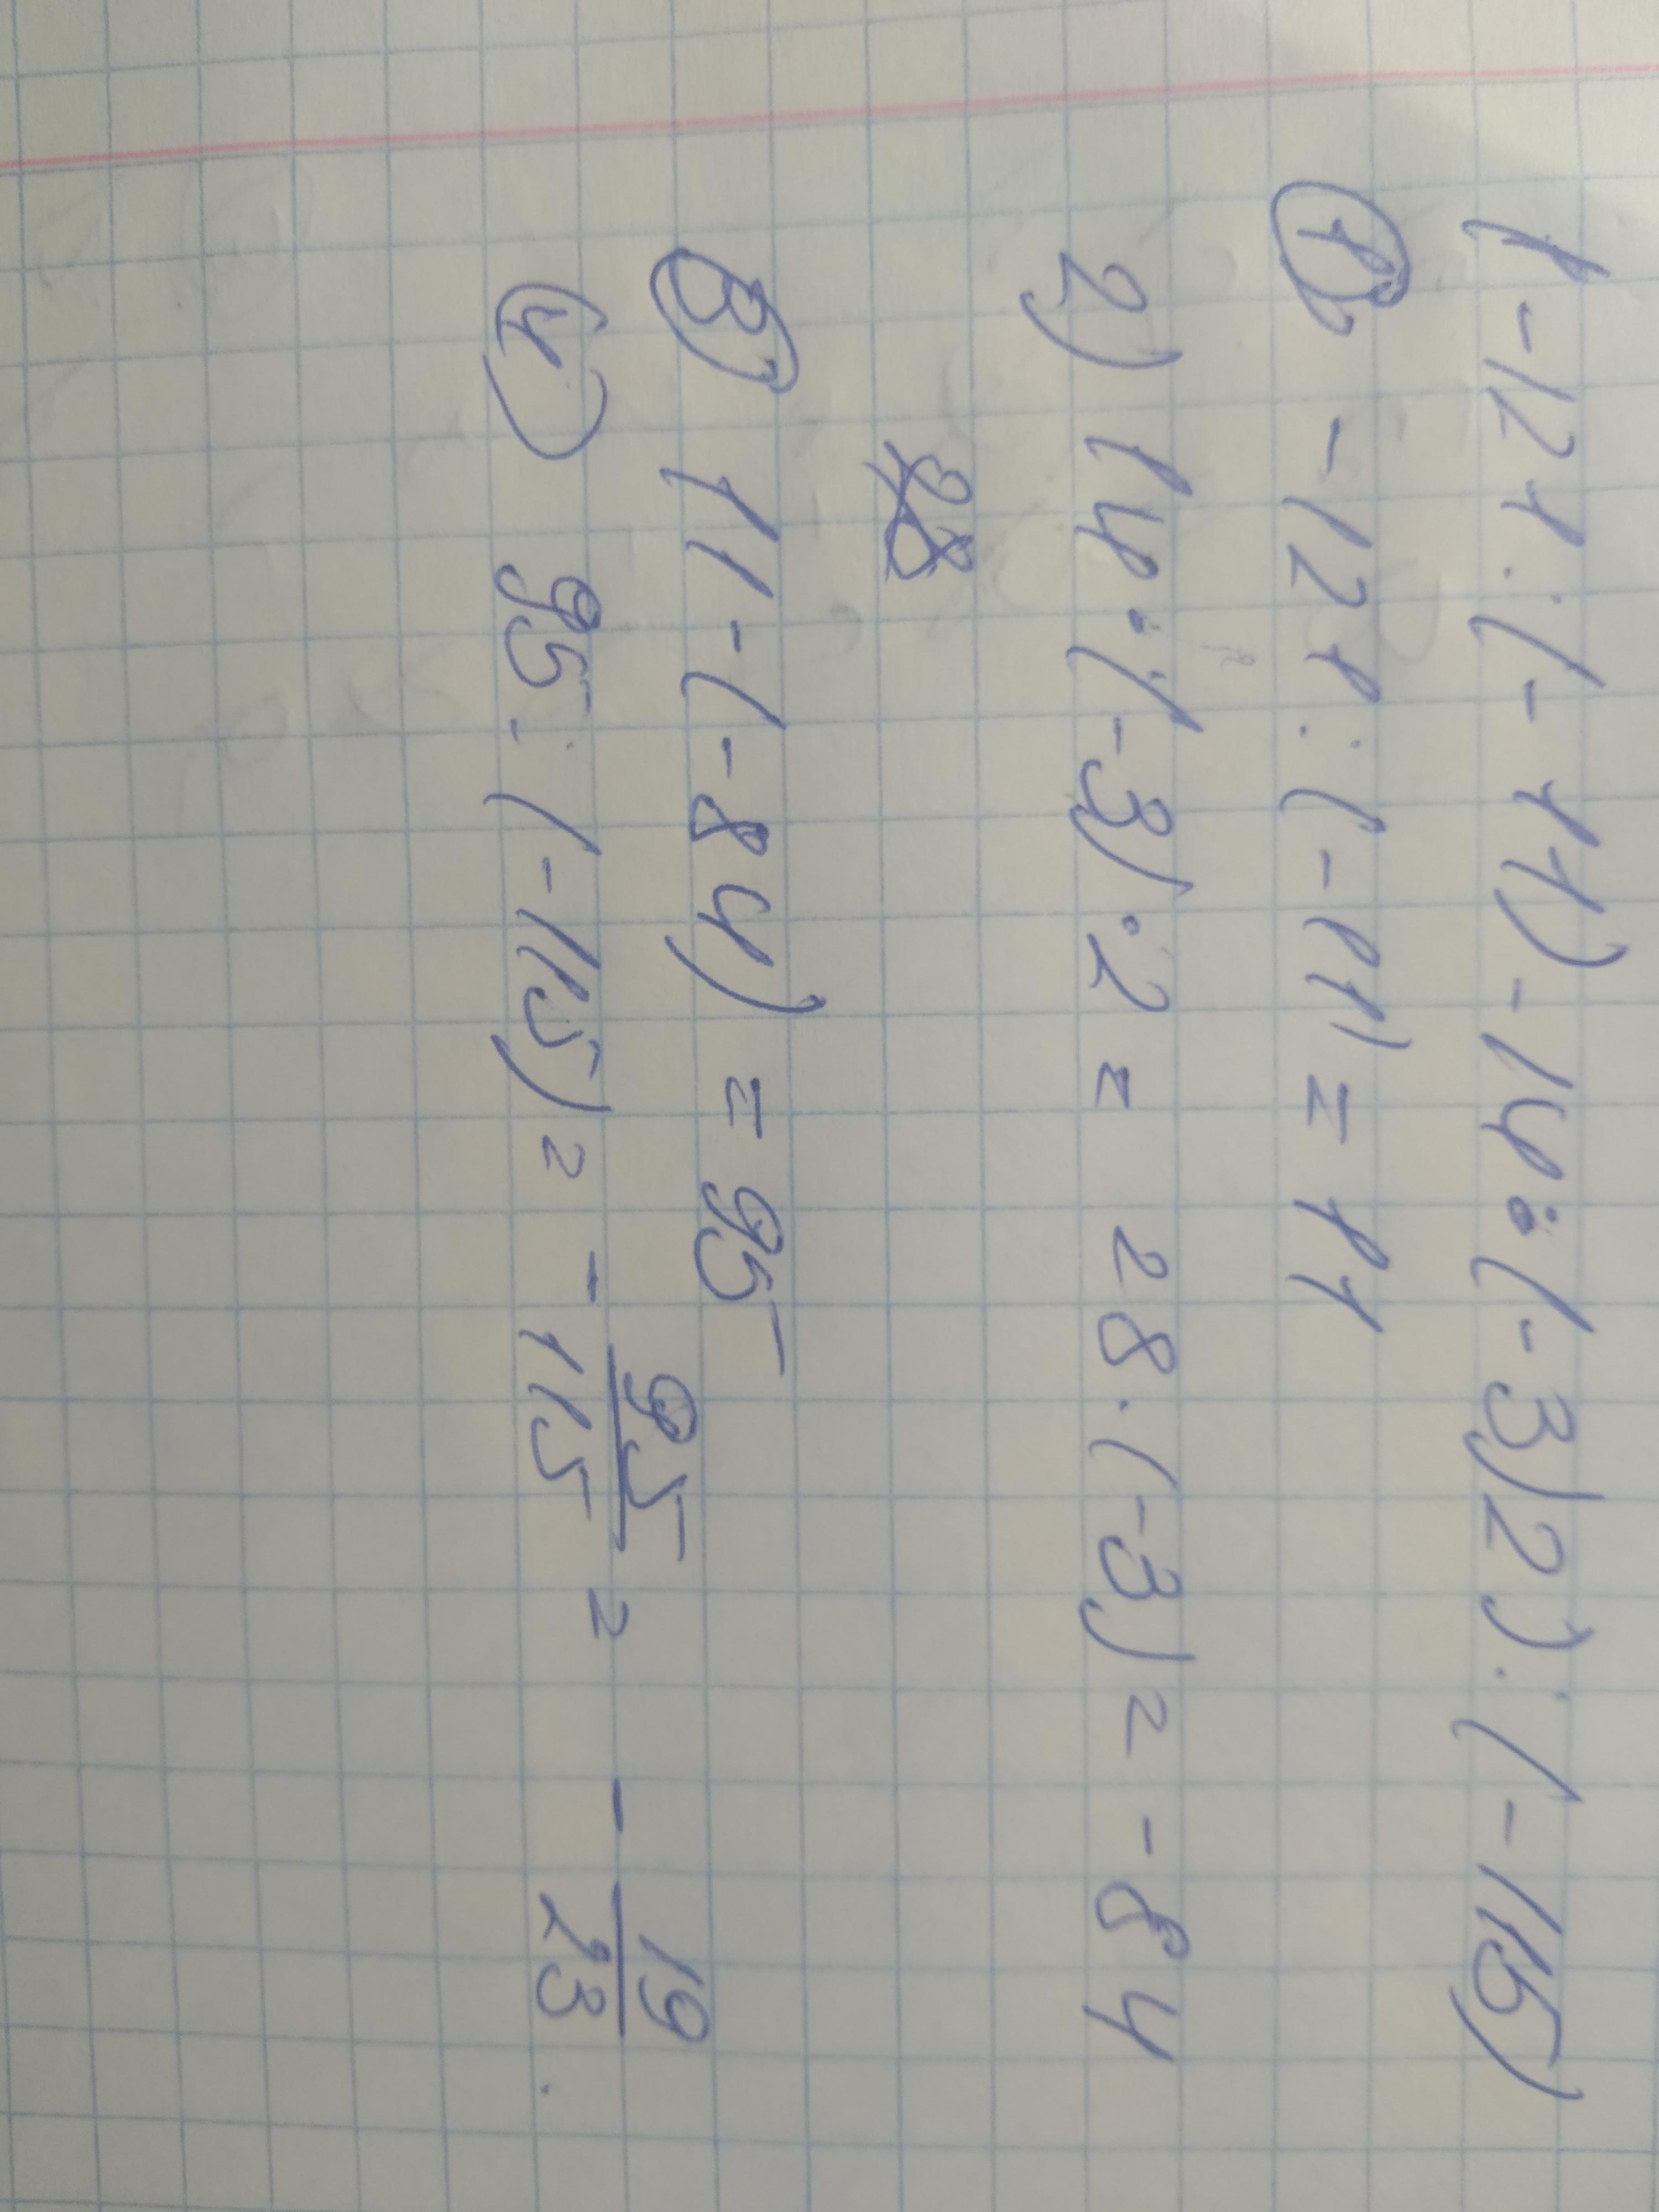 (-121:(-11)-14·(-3)2):(-115)
1) -121:(-11)=11
2) 14·(-3)·2= 28·(-3)=-84
28
3) 11-(-84)=95
4) 95:(-115)=-95/115=-19/23.